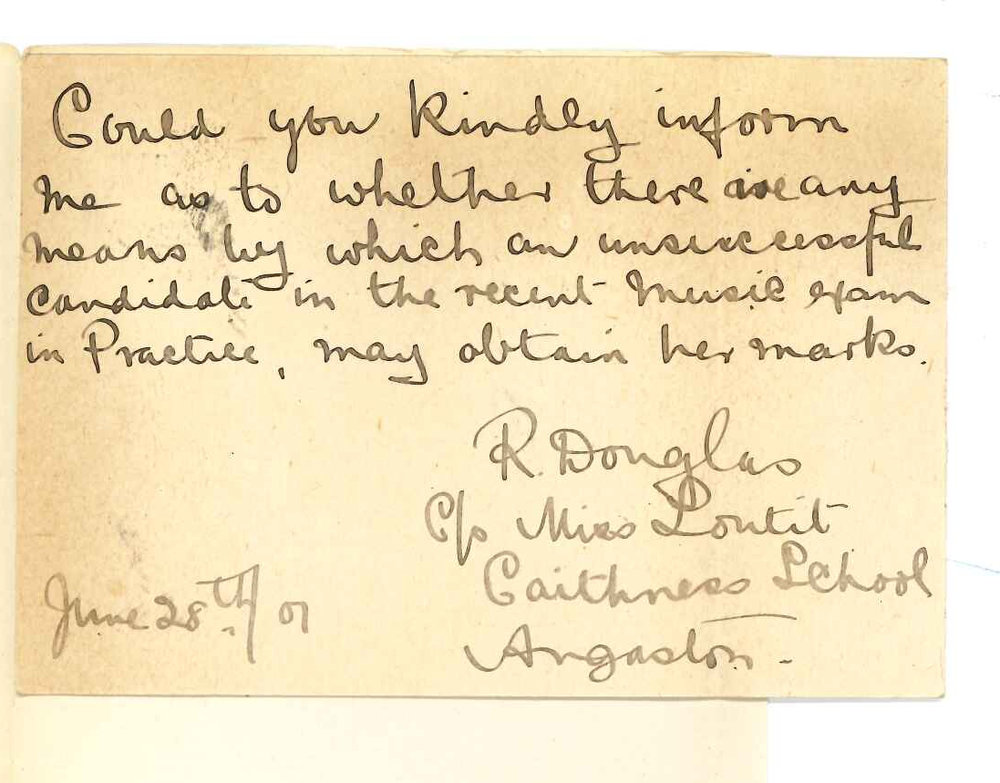 Could you kindly inform
me as to whether there are any
means by which an unsuccessful
candidate in the recent music exam
in Practice, may obtain her marks.
R. Douglas
C/o Miss Loutit
Caithness School
Angaston.
June 28th/01